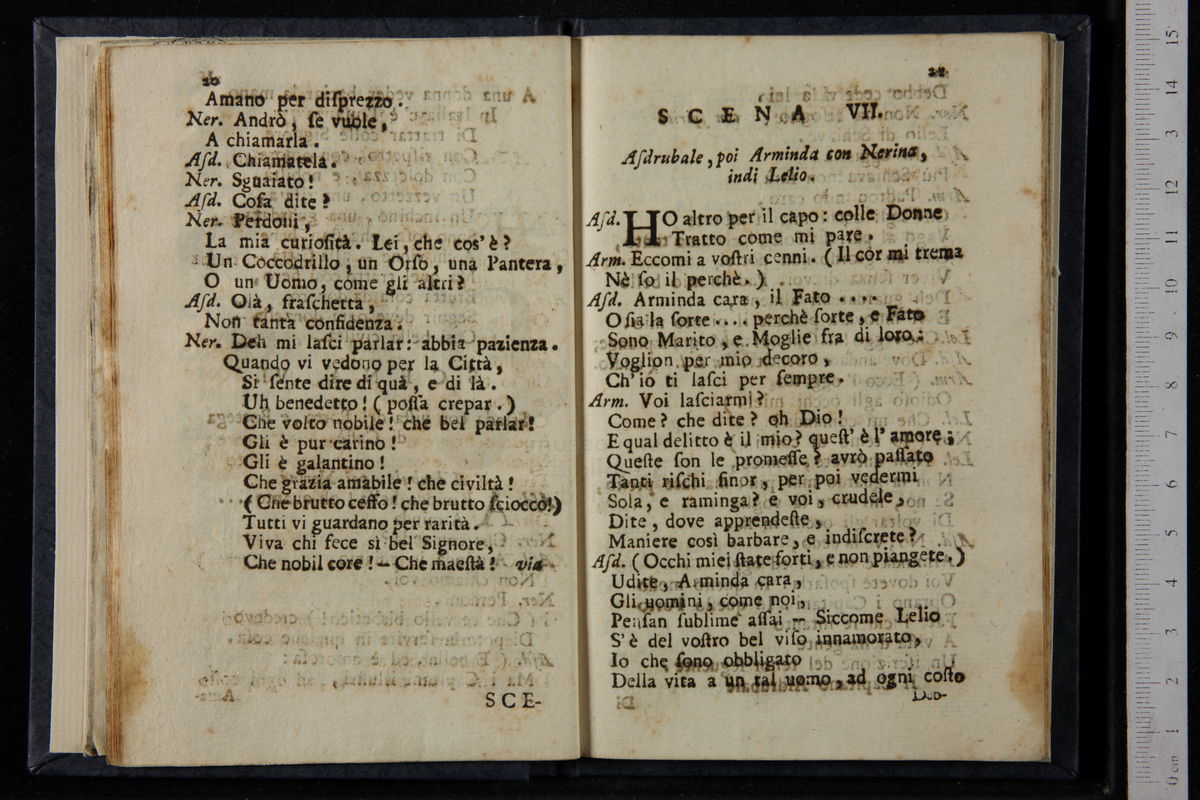 20
Amano per diſprezzo.
Ner. Andrò, ſe vuole,
A chiamarla.
Aſd. Chiamatela.
Ner. Sguaiato!
Aſd. Coſa dite?
Ner. Perdoni,
La mia curioſità. Lei, che cos'è?
Un Coccodrillo, un Orſo, una Pantera,
O un Uomo, come gli altri?
Aſd. Olà, fraſchetta,
Non tanta confidenza.
Ner. Deh mi laſci parlar: abbia pazienza.
Quando vi vedono per la Città,
Si ſente dire di quà, e di là.
Uh benedetto! (poſſa crepar.)
Che volto nobile! che bel parlar!
Gli è pur carino!
Gli è galantino!
Che grazia amabile! che civiltà!
(Che brutto ceffo! che brutto ſciocco!)
Tutti vi guardano per rarità.
Viva chi fece sì bel Signore,
Che nobil core! — Che maeſtà! via
SCE-
21
SCENA VII.
Aſdrubale, poi Arminda con Nerina,
indi Lelio.
Aſd. HO altro per il capo: colle Donne
Tratto come mi pare.
Arm. Eccomi a voſtri cenni. (Il cor mi trema
Nè ſo il perchè.)
Aſd. Arminda cara, il Fato ....
O ſia la ſorte .... perchè ſorte, e Fato
Sono Marito, e Moglie fra di loro:
Voglion per mio decoro,
Ch'io ti laſci per ſempre.
Arm. Voi laſciarmi?
Come? che dite? oh Dio!
E qual delitto è il mio? queſt' è l'amore;
Queſte ſon le promeſſe? avrò paſſato
Tanti riſchi finor, per poi vedermi
Sola, e raminga? e voi, crudele,
Dite, dove apprendeſte,
Maniere così barbare, e indiſcrete?
Aſd. (Occhi miei ſtate forti, e non piangete.)
Udite, Arminda cara,
Gli uomini, come noi,
Penſan ſublime aſſai — Siccome Lelio
S'è del voſtro bel viſo innamorato,
Io che ſono obbligato
Della vita a un tal uomo, ad ogni coſto
Deb-
0 cm 1 2 3 4 5 6 7 8 9 10 11 12 13 14 15